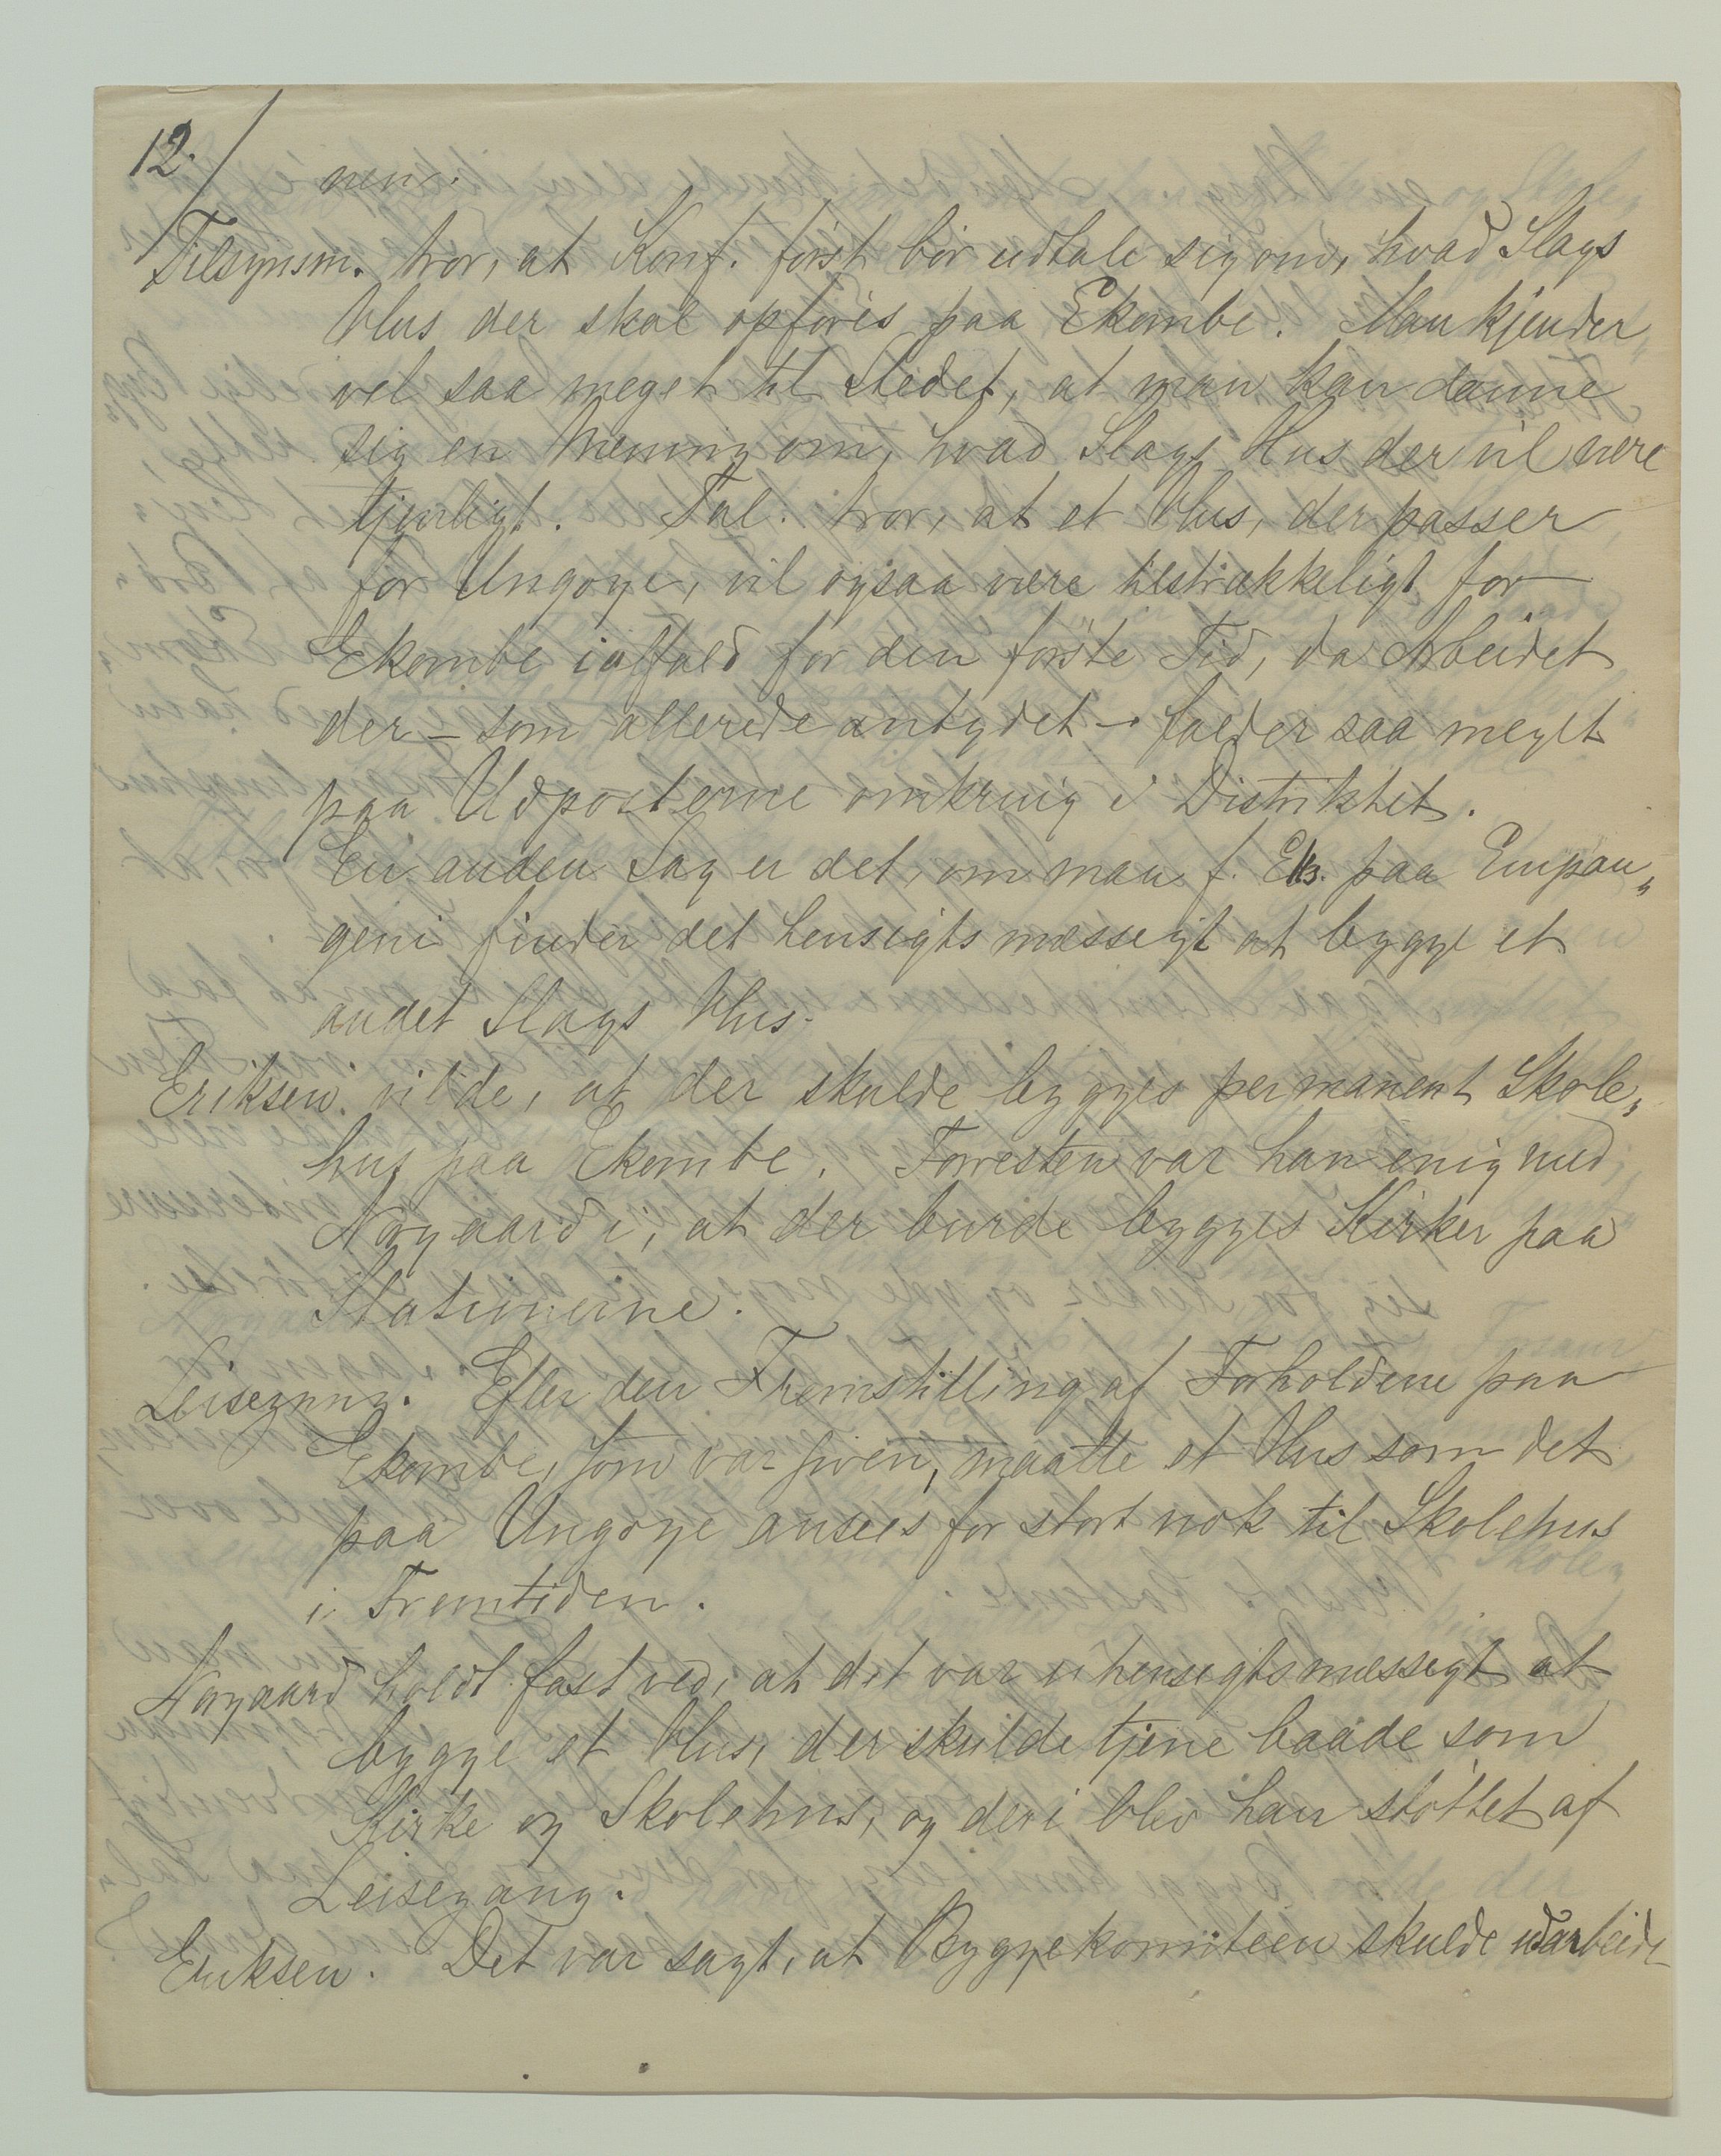 12./
nene.
Tilsynsm. tror, at Konf. först bör udtale sig om, hvad Slags
Hus der skal opföres paa Ekombe. Man kjender
vel saa meget til Stedet, at man kan danne
sig en Mening om, hvad Slags Hus der vil være
tjenligt. Tal. tror, at et Hus, der passer
for Ungoye, vil ogsaa være tilstrækkeligt for
Ekombe ialfald for den förste Tid, da Arbeidet
der – som allerede antydet – falder saa meget
paa Udposterne omkring i Distriktet.
En anden Sag er det, om man f. Eks. paa Empan„
geni finder det hensigtsmæssigt at bygge et
andet Slags Hus.
Eriksen vilde, at der skulde bygges permanent Skole„
hus paa Ekombe. Forresten var han enig med
Norgaard i, at der burde bygges Kirker paa
Stationerne.
Leisegang. Efter den Fremstilling af Forholdene paa
Ekombe, som var given, maatte et Hus som det
paa Ungoye ansees for stort nok til Skolehus
i Fremtiden.
Norgaard holdt fast ved, at det var uhensigtsmæssigt at
bygge et Hus, der skulde tjene baade som
Kirke og Skolehus, og deri blev han stöttet af
Leisegang.
Eriksen. Det var sagt, at Byggekomiteen skulde udarbeide